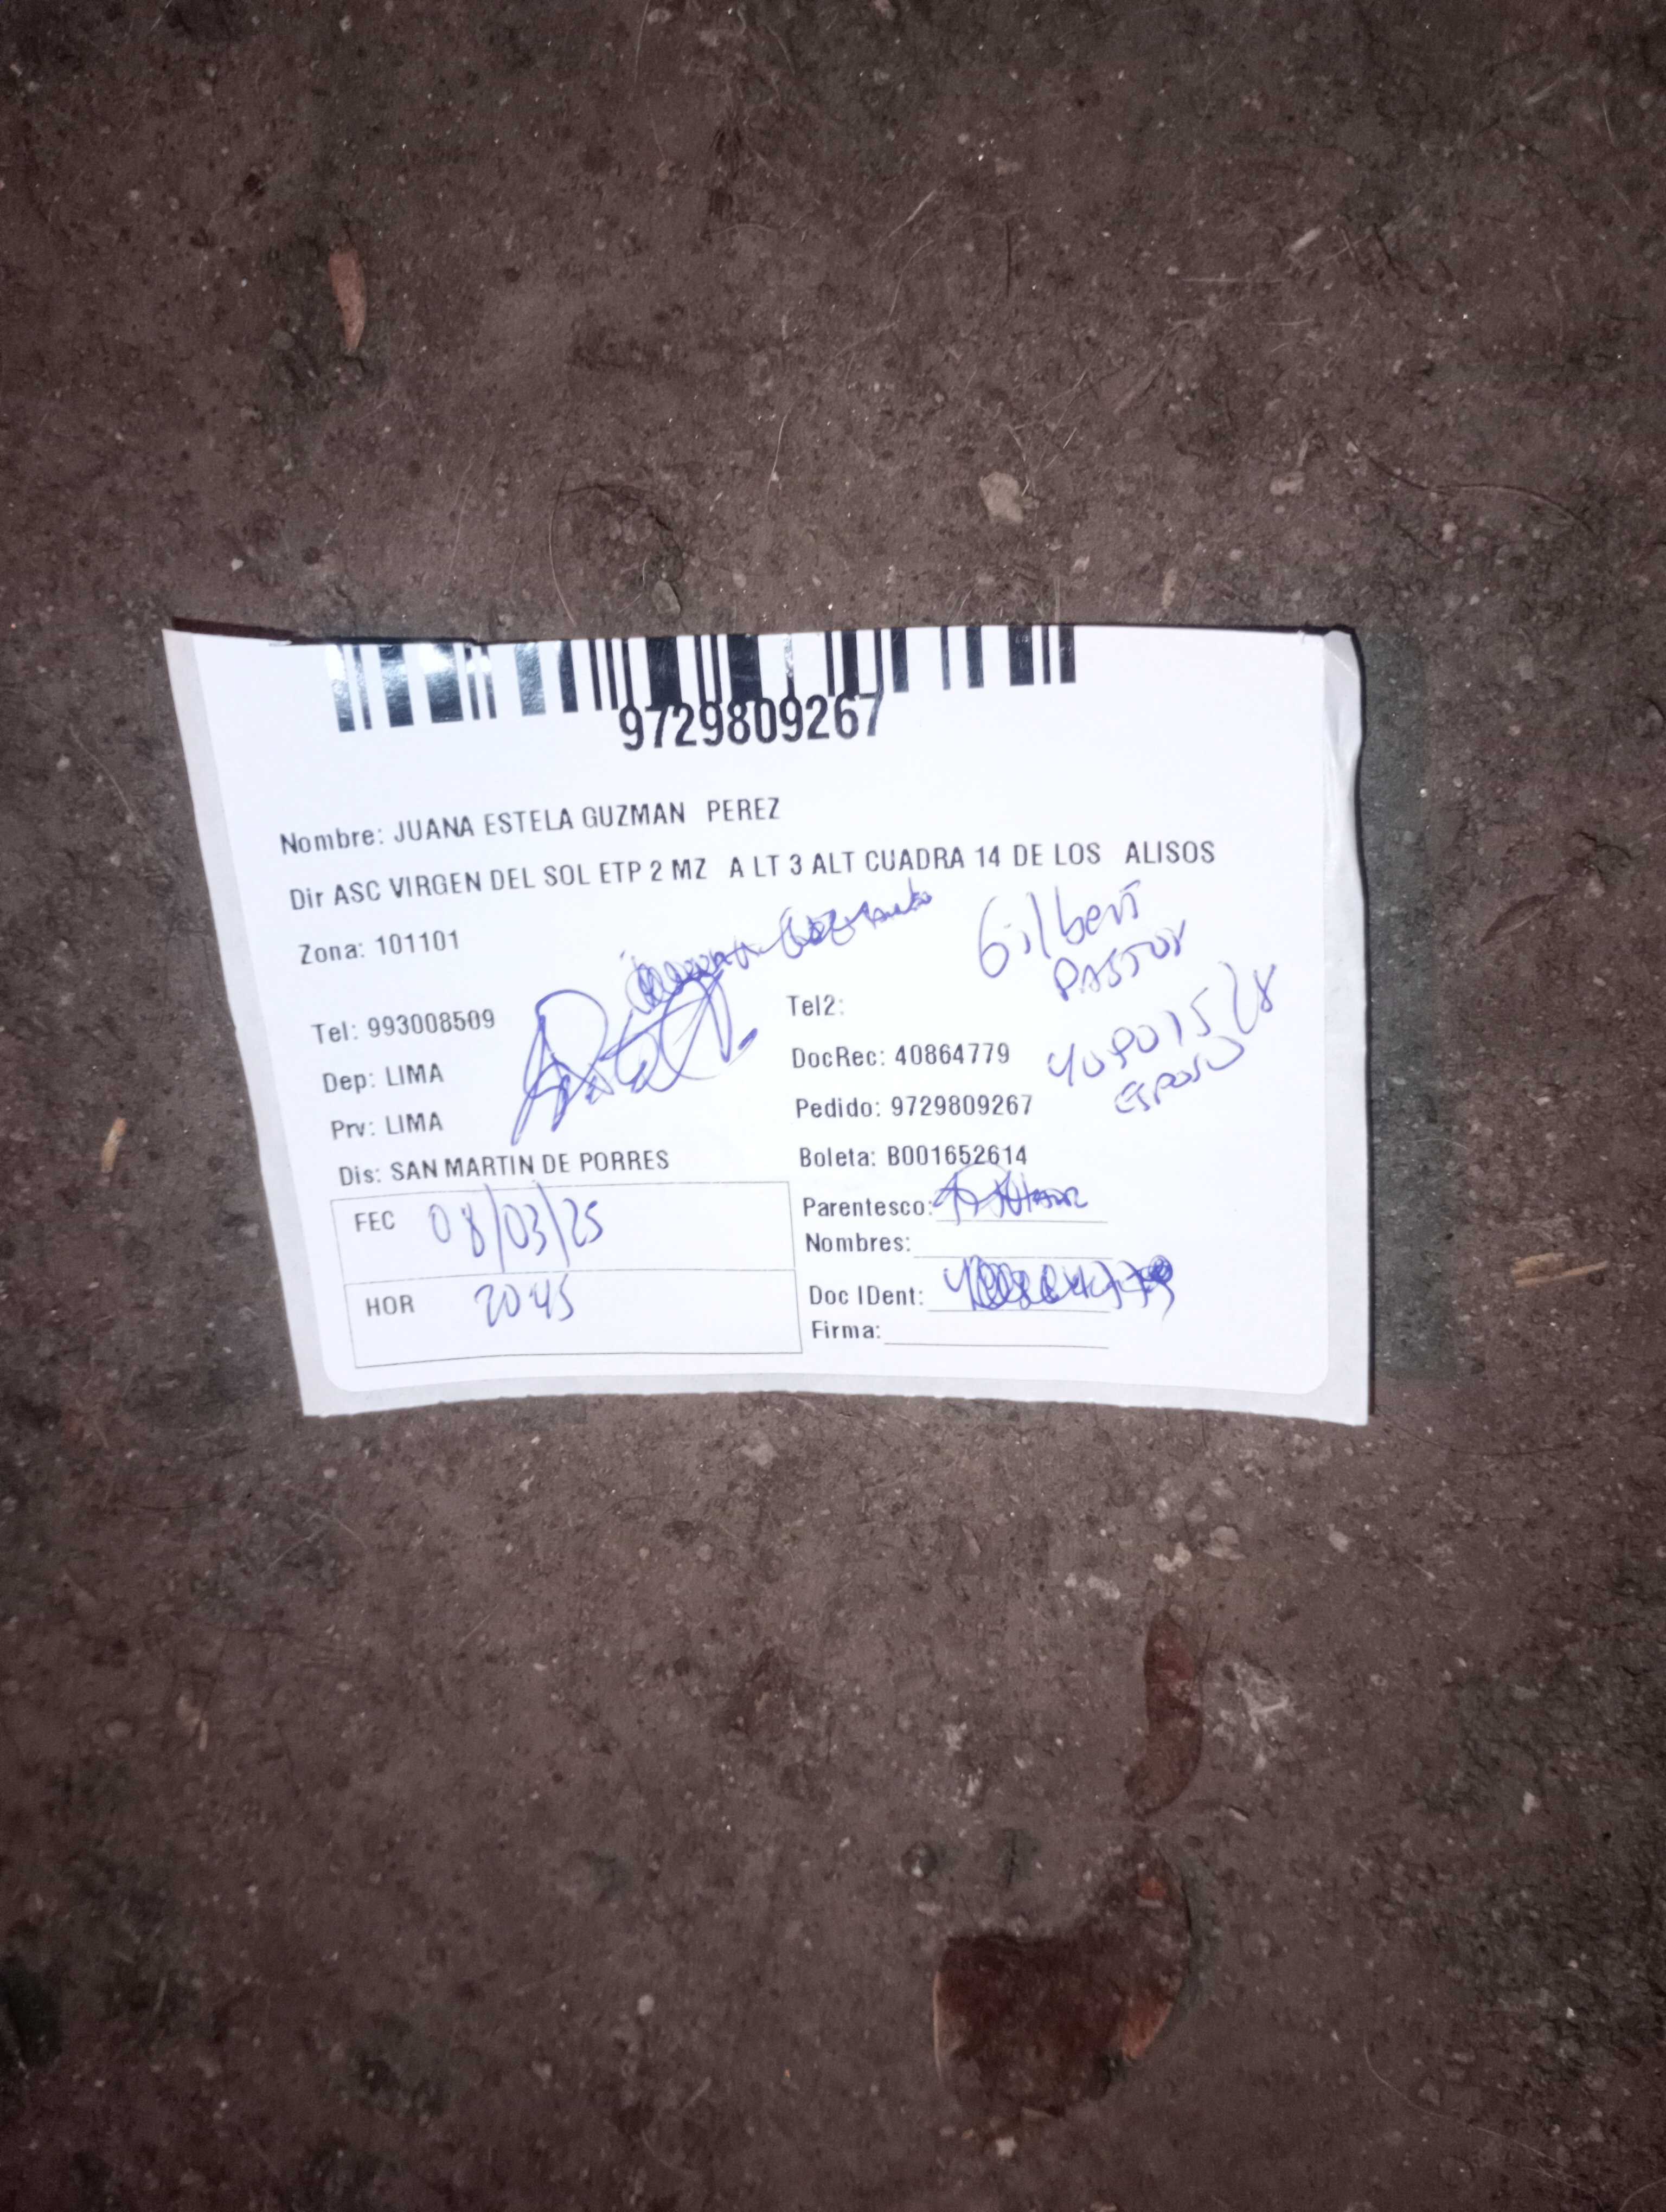 9729809267
Nombre: JUANA ESTELA GUZMAN PEREZ
Dir ASC VIRGEN DEL SOL ETP 2 MZ A LT 3 ALT CUADRA 14 DE LOS ALISOS
Zona: 101101
Gilbert
PASTOR
Tel: 993008509
Tel2:
Dep: LIMA
DocRec: 40864779
ESPOSO
Prv: LIMA
Pedido: 9729809267
Dis: SAN MARTIN DE PORRES
Boleta: B001652614
FEC 08/03/25
Parentesco:
Nombres:
HOR 2045
Doc IDent:
Firma: